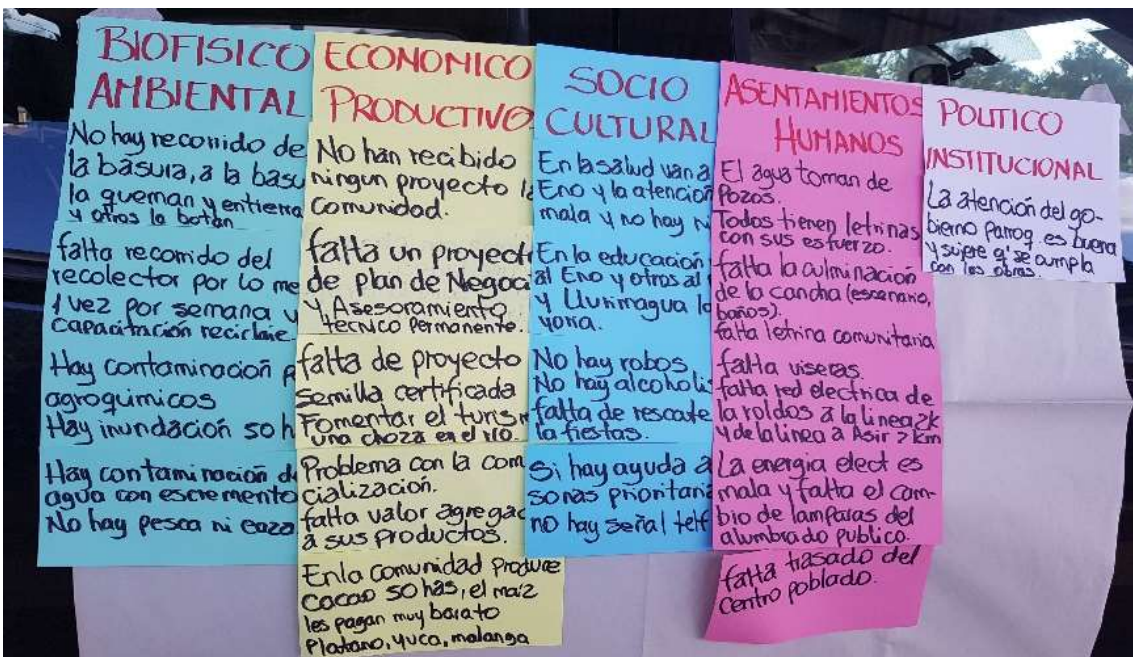 BIOFISICO
AMBIENTAL
No hay recorrido de
la basura, a la basu
la queman y entierra
y otros la botan
falta recorrido del
recolector por lo me
1 vez por semana y
capacitación reciclaje
Hay contaminación p
agroquimicos
Hay inundación 50 h
Hay contaminación d
agua con escremento
No hay pesca ni caza
ECONOMICO
PRODUCTIVO
No han recibido
ningun proyecto la
comunidad.
falta un proyect
de plan de Negoci
y Asesoramiento
tecnico Permanente.
falta de proyecto
Semilla certificada
Fomentar el turis
una choza en el río.
Problema con la com
cialización.
falta valor agregad
a sus productos.
En la comunidad Produce
Cacao 50 has, el maiz
les pagan muy barato
Platano, yuca, malanga
SOCIO
CULTURAL
En la salud van a
Eno y la atención
mala y no hay ni
En la educación
al Eno y otros al
y Llurimagua la
yoria.
No hay robos
No hay alcoholis
falta de rescate
la fiestas.
Si hay ayuda a
sonas prioritaria
no hay señal telf
ASENTAMIENTOS
HUMANOS
El agua toman de
Pozos.
Todos tienen letrinas
con sus esfuerzo.
falta la culminación
de la cancha (escenario,
baños).
falta letrina comunitaria
falta viseras.
falta red electrica de
la roldos a la linea 2k
y de la linea a Asir 7 km
La energia elect es
mala y falta el cam-
bio de lamparas del
alumbrado publico.
falta trasado del
centro poblado.
POLITICO
INSTITUCIONAL
La atención del go-
bierno Parroq. es buena
y sujere q' se cumpla
con las obras.